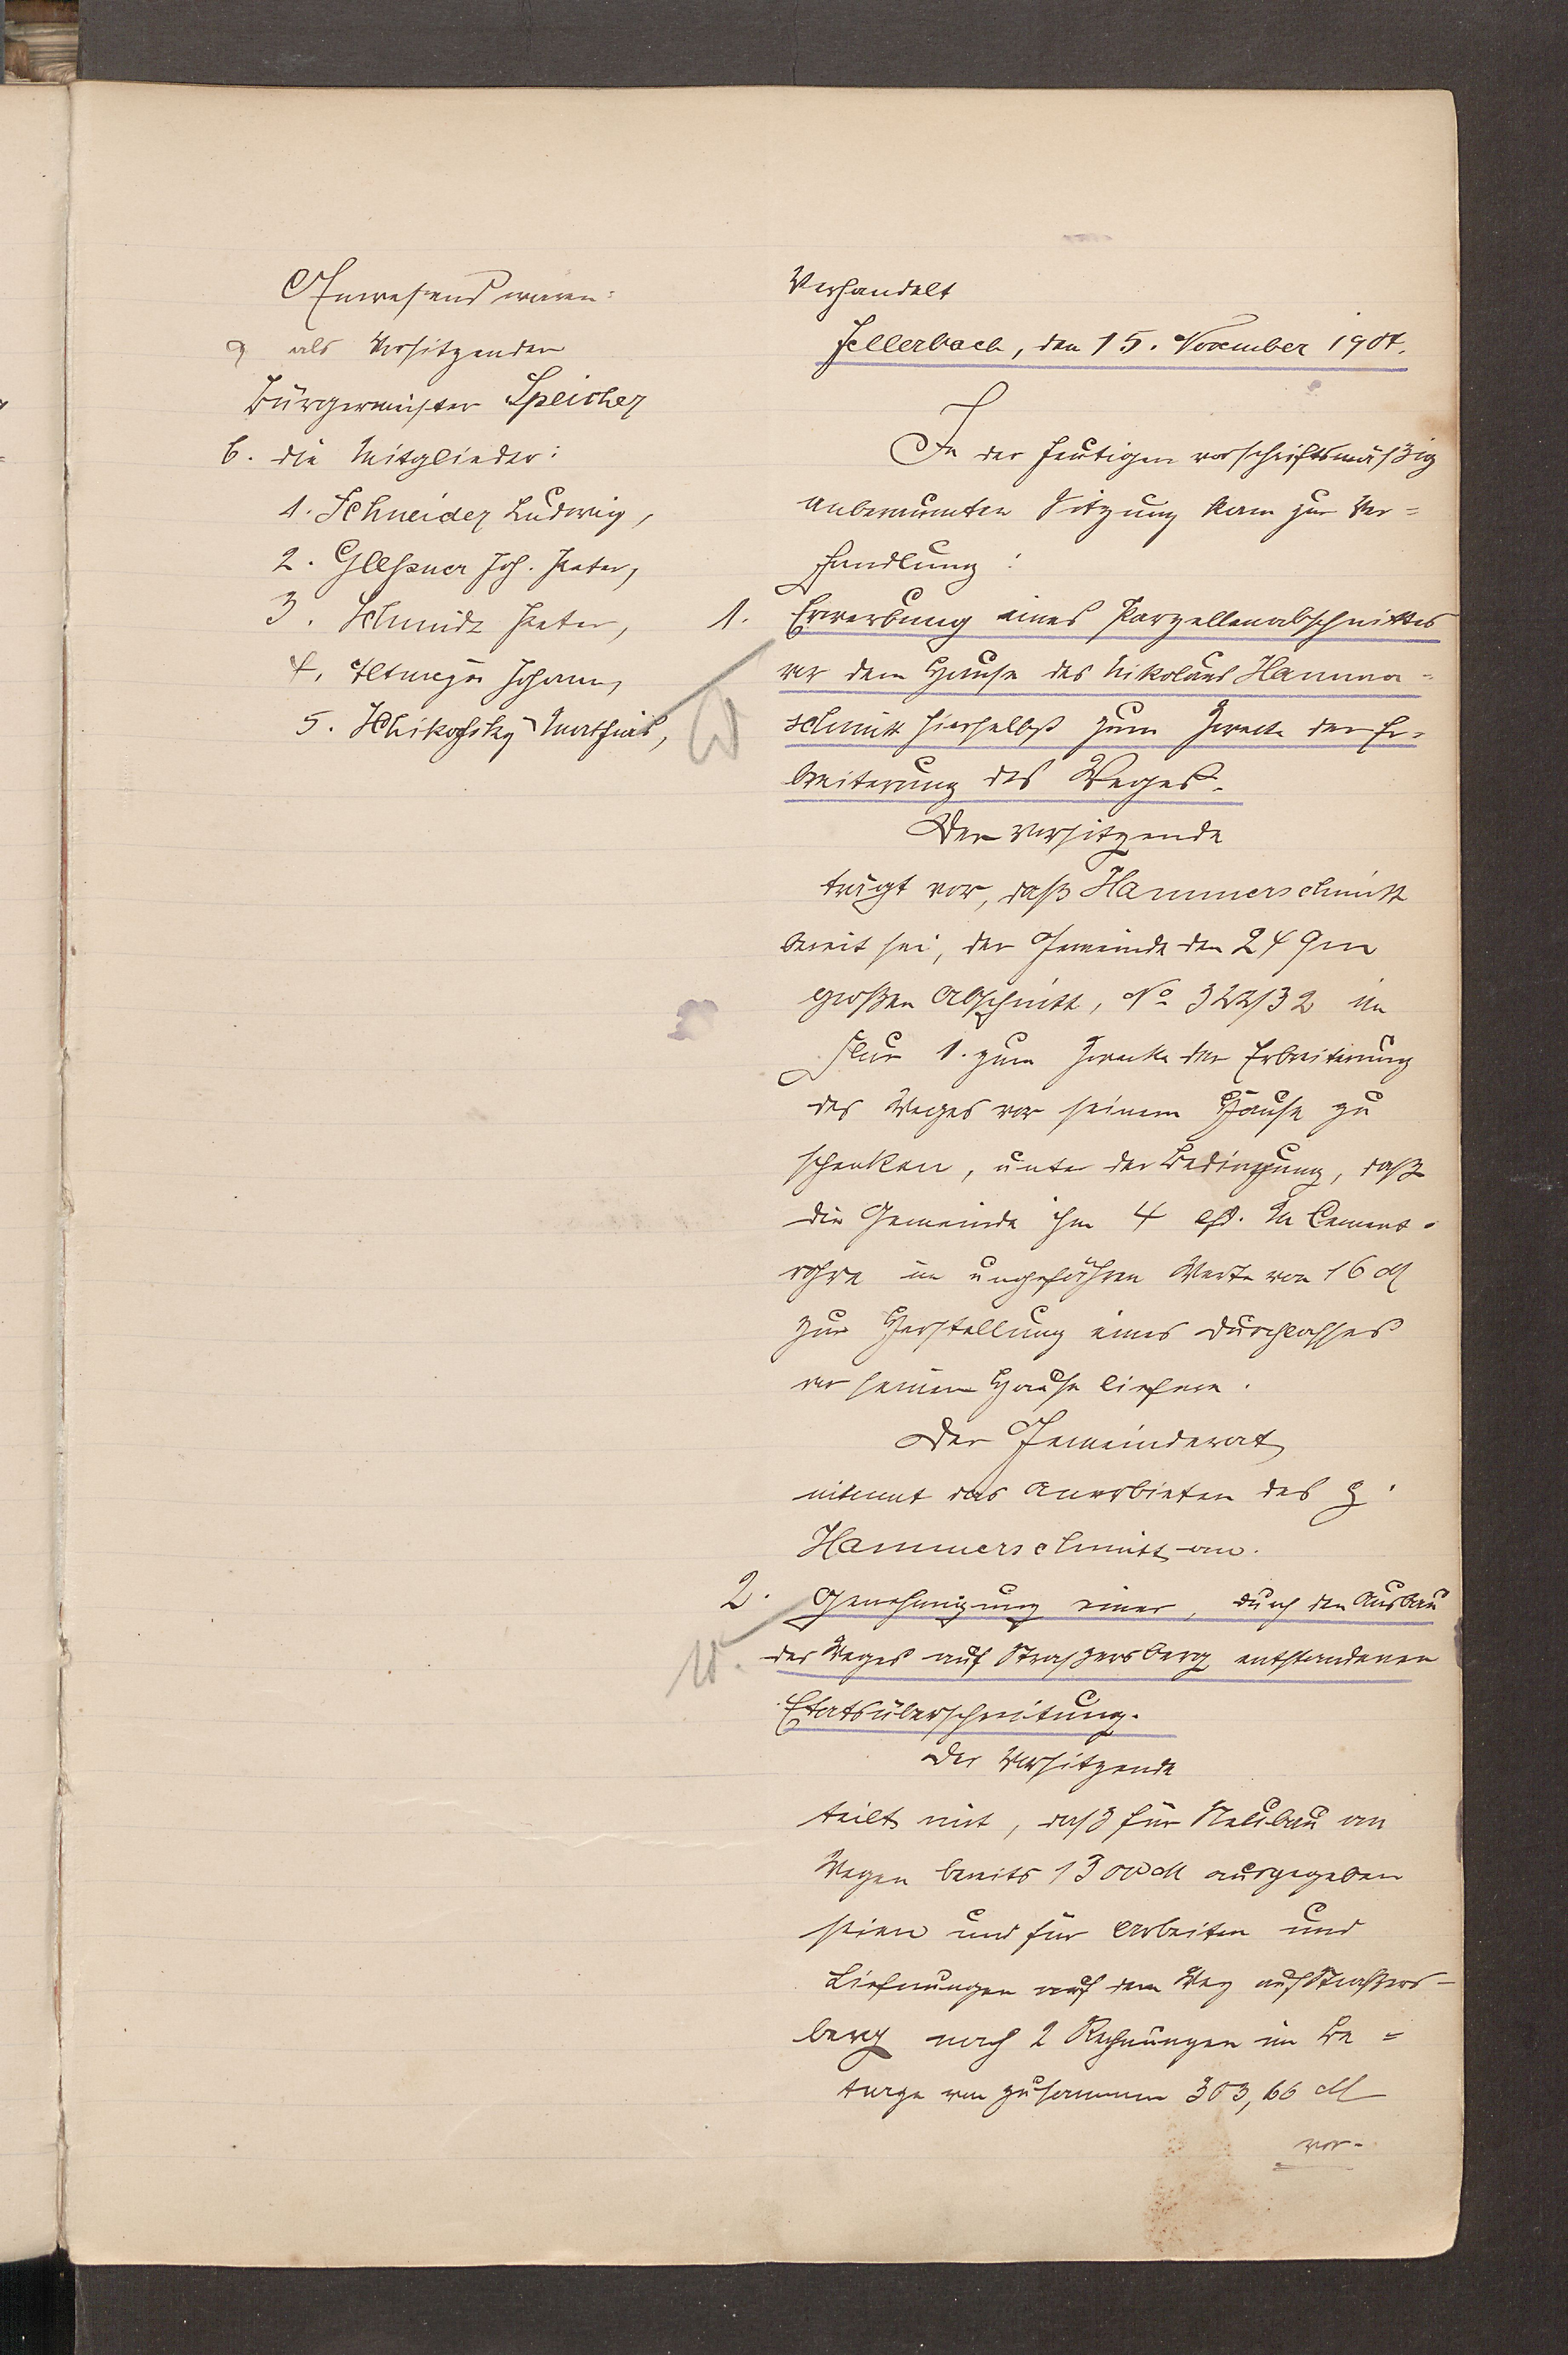 Anwesend waren:
a als Vorsitzender
Bürgermeister Speicher
b. die Mitglieder:
1. Schneider Ludwig,
2. Glessner Joh. Peter,
3. Schmidt Peter,
4. Altmeyer Johann,
5. Mathias,
Verhandelt
Jellerbach, den 15. November 1904.
In der heutigen vorschriftsmäßig
anberaumten Sitzung kam zur Ver=
handlung:
1. Erwerbung eines Parzellenabschnittes
vor dem Hause des Nikolaus Hammer=
schmitt hierselbst zum Zwecke der Er=
breiterung des Weges.
Der Vorsitzende
trägt vor, daß Hammerschmitt
bereit sei, der Gemeinde den 24 qm
großen Abschnitt, No 322/32 in
Flur 1. zum Zwecke der Erbreiterung
des Weges vor seinem Hause zu
schenken, unter der Bedingung, daß
die Gemeinde ihm 4 lfd. m Cement-
rohre im ungefähren Werte von 16 M
zur Herstellung eines Durchlasses
vor seinem Hause liefere.
Der Gemeinderat
nimmt das Anerbieten des p.
Hammerschmitt an.
2. Genehmigung einer, durch den Ausbau
des Weges auf Straßersberg entstandenen
Etatsüberschreitung.
Der Vorsitzende
teilt mit, daß für Neubau an
Wegen bereits 1300 M ausgegeben
seien und für Arbeiten und
Lieferungen auf dem Weg auf Straßers-
berg noch 2 Rechnungen im Be=
trage von zusammen 303,66 M
vor-